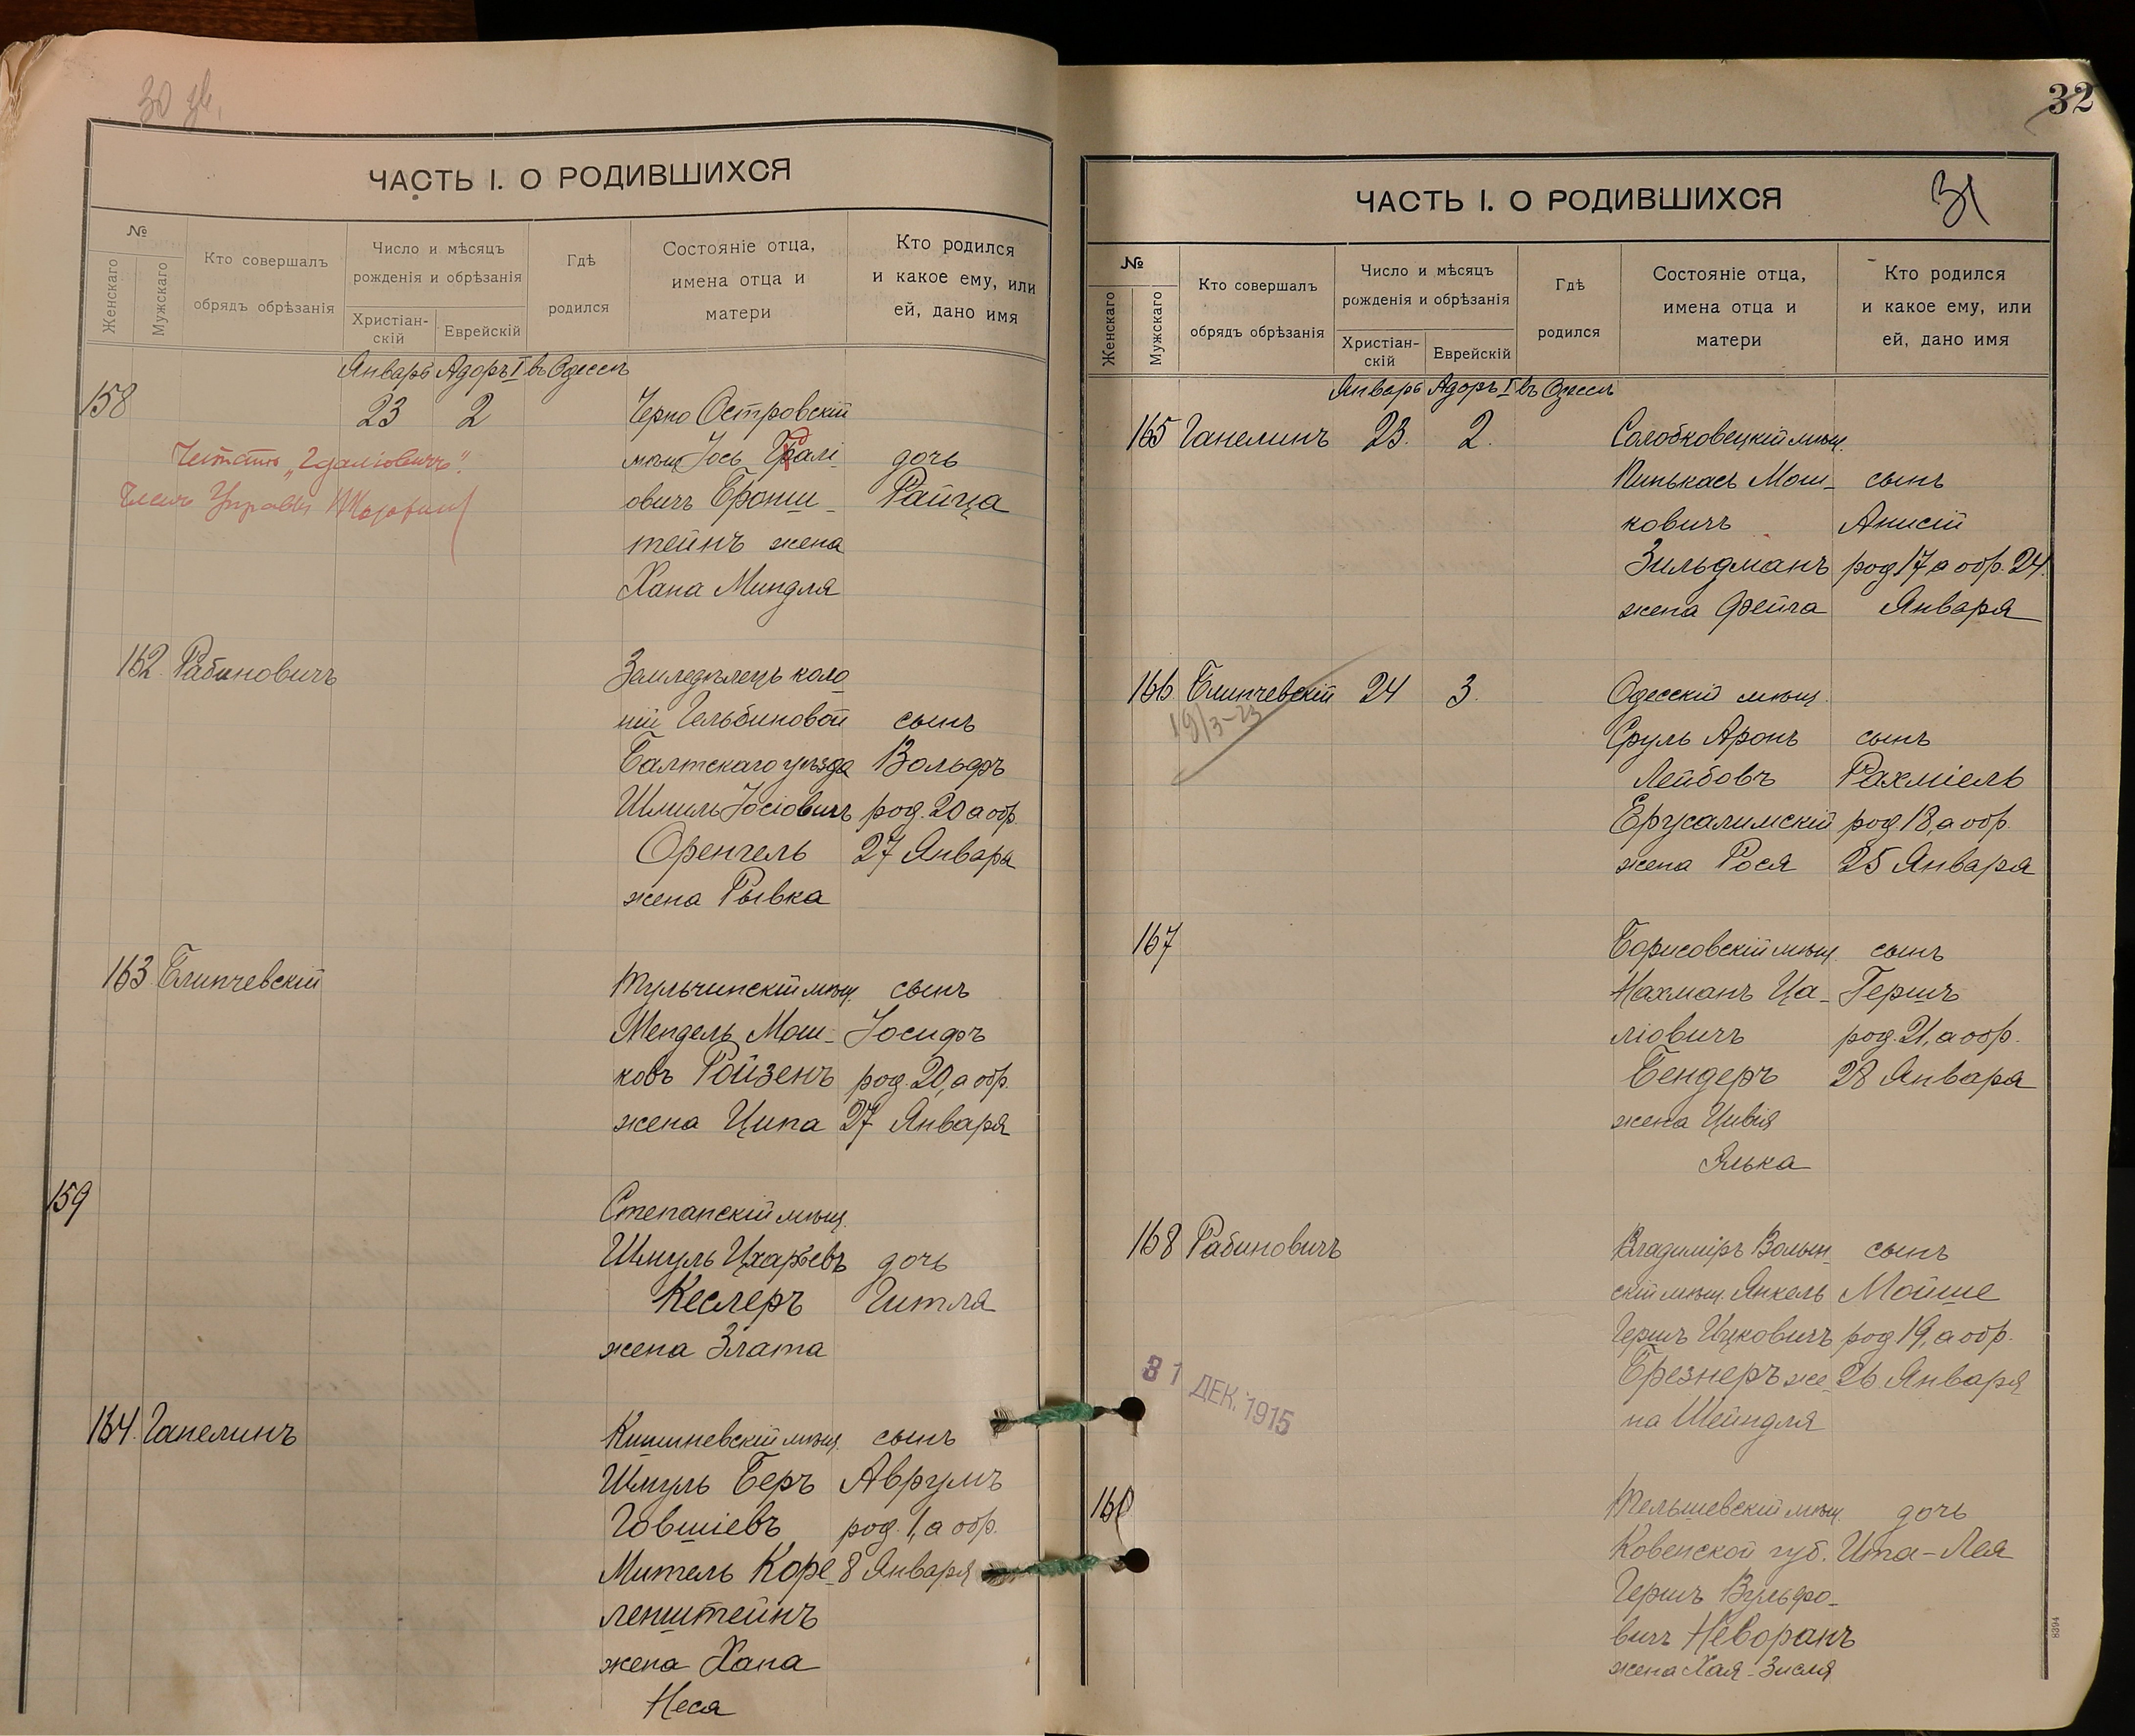 30 зв.
ЧАСТЬ I. О РОДИВШИХСЯ
№
Женскаго
Мужскаго
Кто совершалъ
обрядъ обрѣзанія
Число и мѣсяцъ
рожденія и обрѣзанія
Христіан-
скій
Еврейскій
Гдѣ
родился
Состояніе отца,
имена отца и
матери
Кто родился
и какое ему, или
ей, дано имя
Январь Адоръ I въ Одессѣ
158 23 2 Черно Островскій
мѣщ Іось
овичъ Бронш- Райца
дочь
тейнъ жена
Хана Миндля
Читать „Гдаліовичъ".
Членъ Управы
162 Рабиновичъ Земледѣлецъ коло
ніи Гельбиновой сынъ
Балтскаго уѣзда Вольфъ
Шмиль Іосіовичъ род. 20 а обр.
Оренгель 27 Января
жена Рывка
163 Блинчевскій Тульчинскій мѣщ. сынъ
Мендель Мош- Іосифъ
ковъ Ройзенъ род. 20, а обр.
жена Ципа 27 Января
159 Степанскій мѣщ.
Шмуль дочь
Кеслеръ Гитля
жена Злата
164 Ганелинъ Кишиневскій мѣщ. сынъ
Шмуль Беръ Аврумъ
Говшіевъ род. 1, а обр.
Мительь Коре- 8 Января
ленштейнъ
жена Хана
Неся
32
ЧАСТЬ I. О РОДИВШИХСЯ
31
№
Женскаго
Мужскаго
Кто совершалъ
обрядъ обрѣзанія
Число и мѣсяцъ
рожденія и обрѣзанія
Христіан-
скій
Еврейскій
Гдѣ
родился
Состояніе отца,
имена отца и
матери
Кто родился
и какое ему, или
ей, дано имя
Январь Адоръ I въ Одессѣ
165 Ганелинъ 23. 2. Солобковецкій мѣщ.
Пинькасъ Мош- сынъ
ковичъ Анисій
Зильдманъ род 17, а обр. 24.
жена Фейга Января
166 Блинчевскій 24 3. Одесскій мѣщ.
19/3-23
Сруль Аронъ сынъ
Лейбовъ Рахміель
Ерусалимскій род 18, а обр.
жена Рося 25 Января
167 Борисовскій мѣщ. сынъ
Нахманъ Ца- Гершъ
ліовичъ род. 21, а обр.
Бендеръ 28 Января
жена Цивія
Элька
168 Рабиновичъ Владиміръ Волын- сынъ
скій мѣщ. Янкель Мойше
Гершъ Ицковичъ род 19, а обр.
Брезнеръ же- 26 Января
на Шейндля
31 ДЕК. 1915
160 Тельшевскій мѣщ. дочь
Ковенской губ. Ита-Лея
Гершъ Вульфо-
вичъ Неворанъ
жена Хая-Зисля
8394